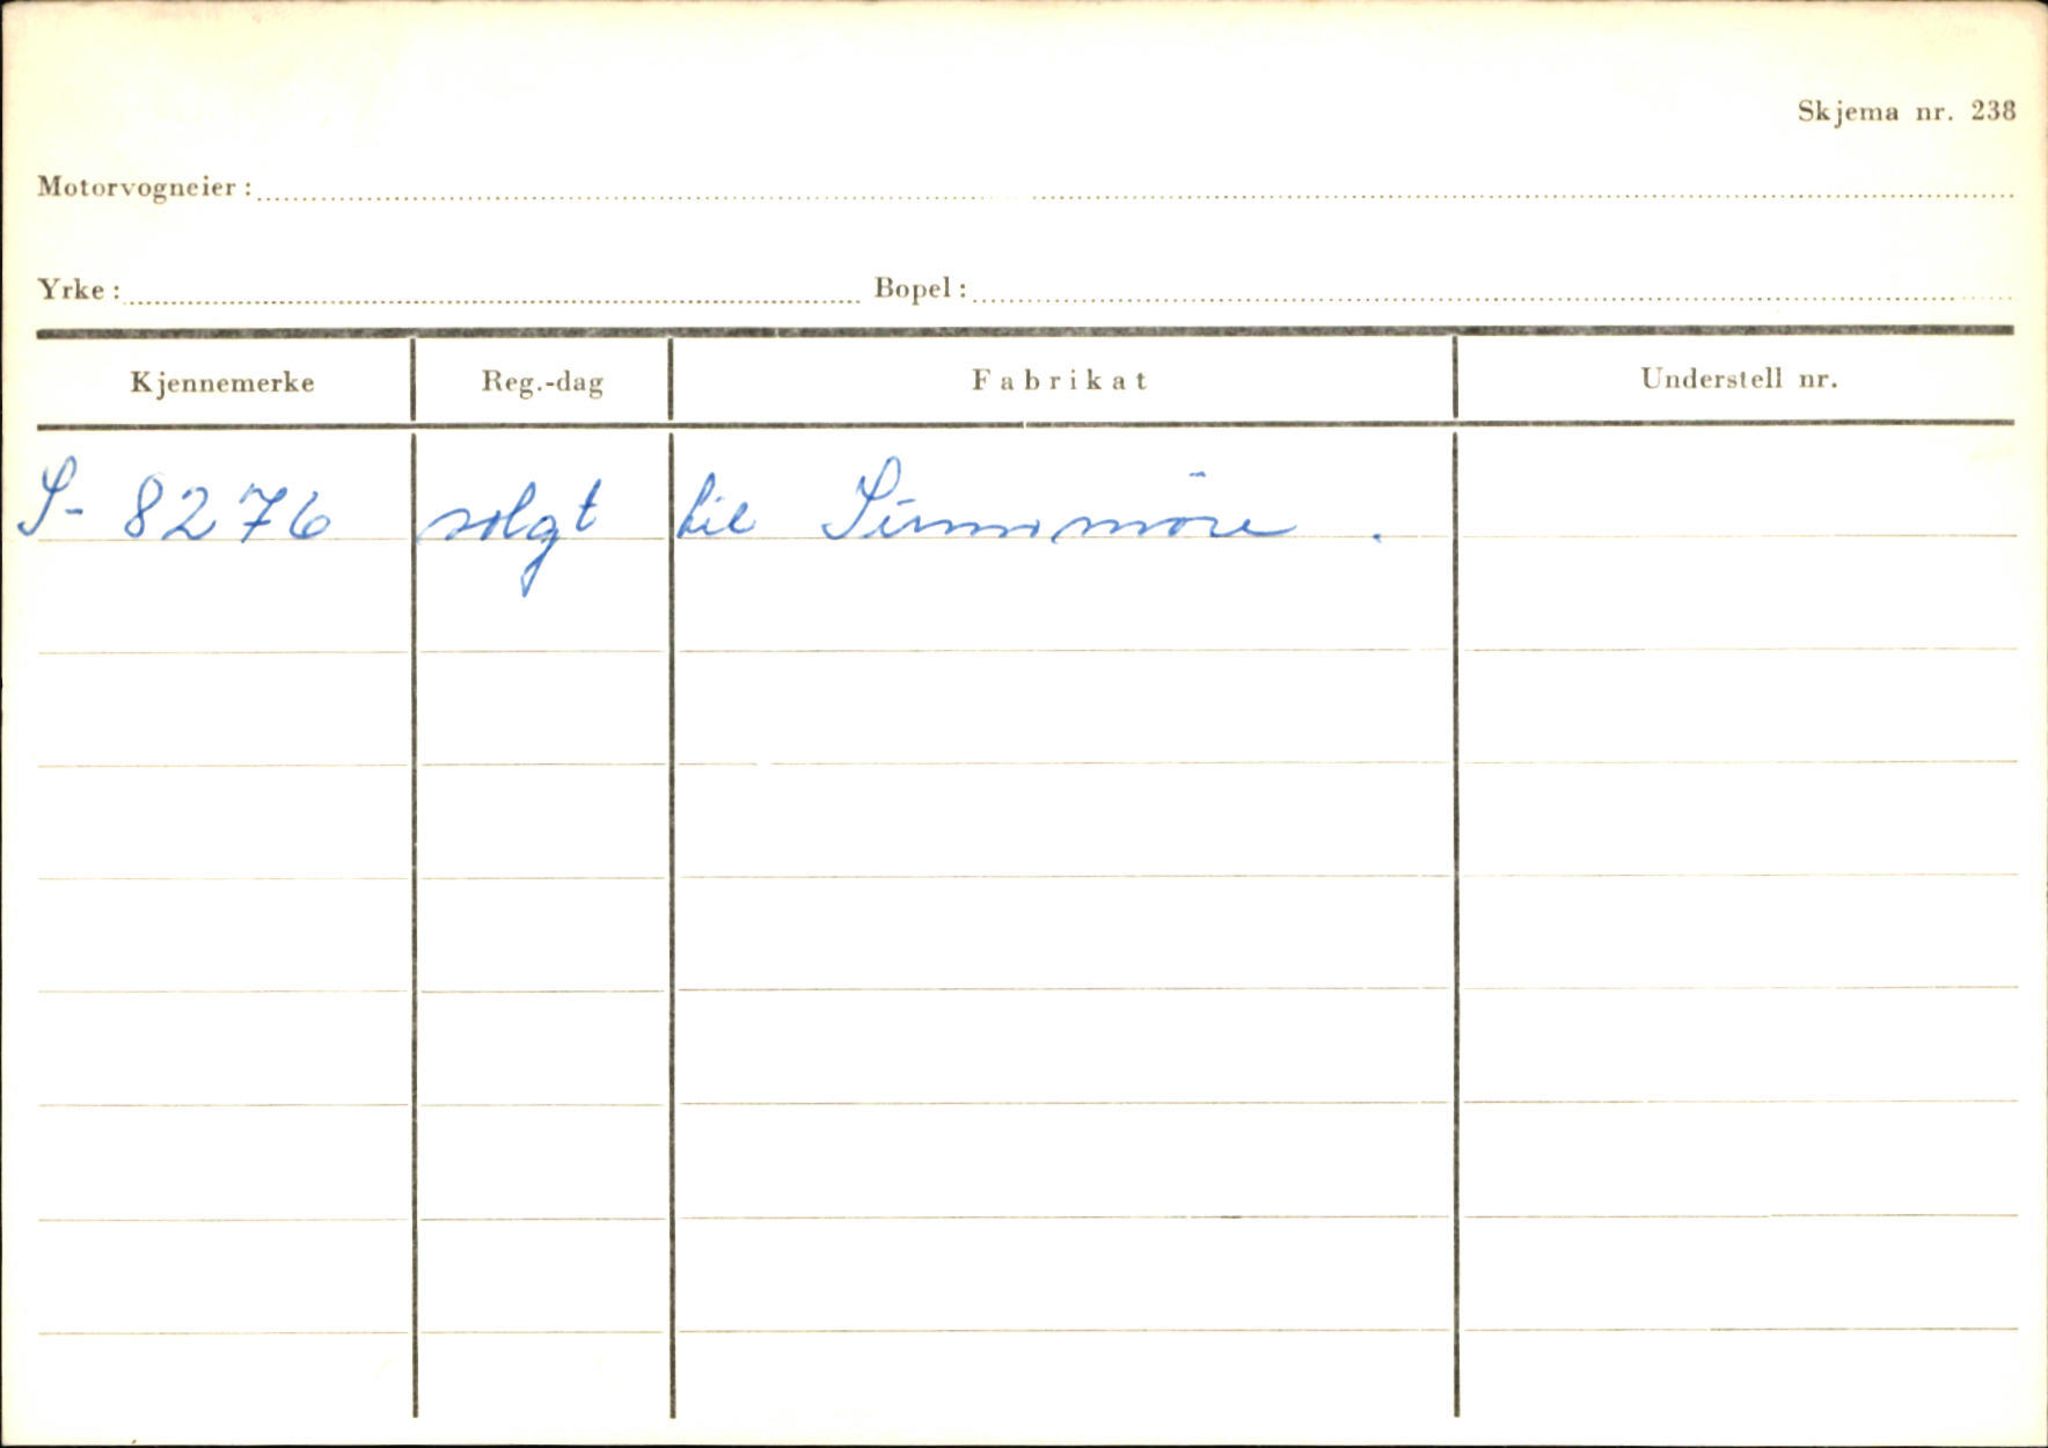 Skjema nr. 238
Motorvogneier:
Yrke: Bopel:
Kjennemerke Reg.-dag Fabrikat Understell nr.
S- 8276 solgt til Sunnmöre .